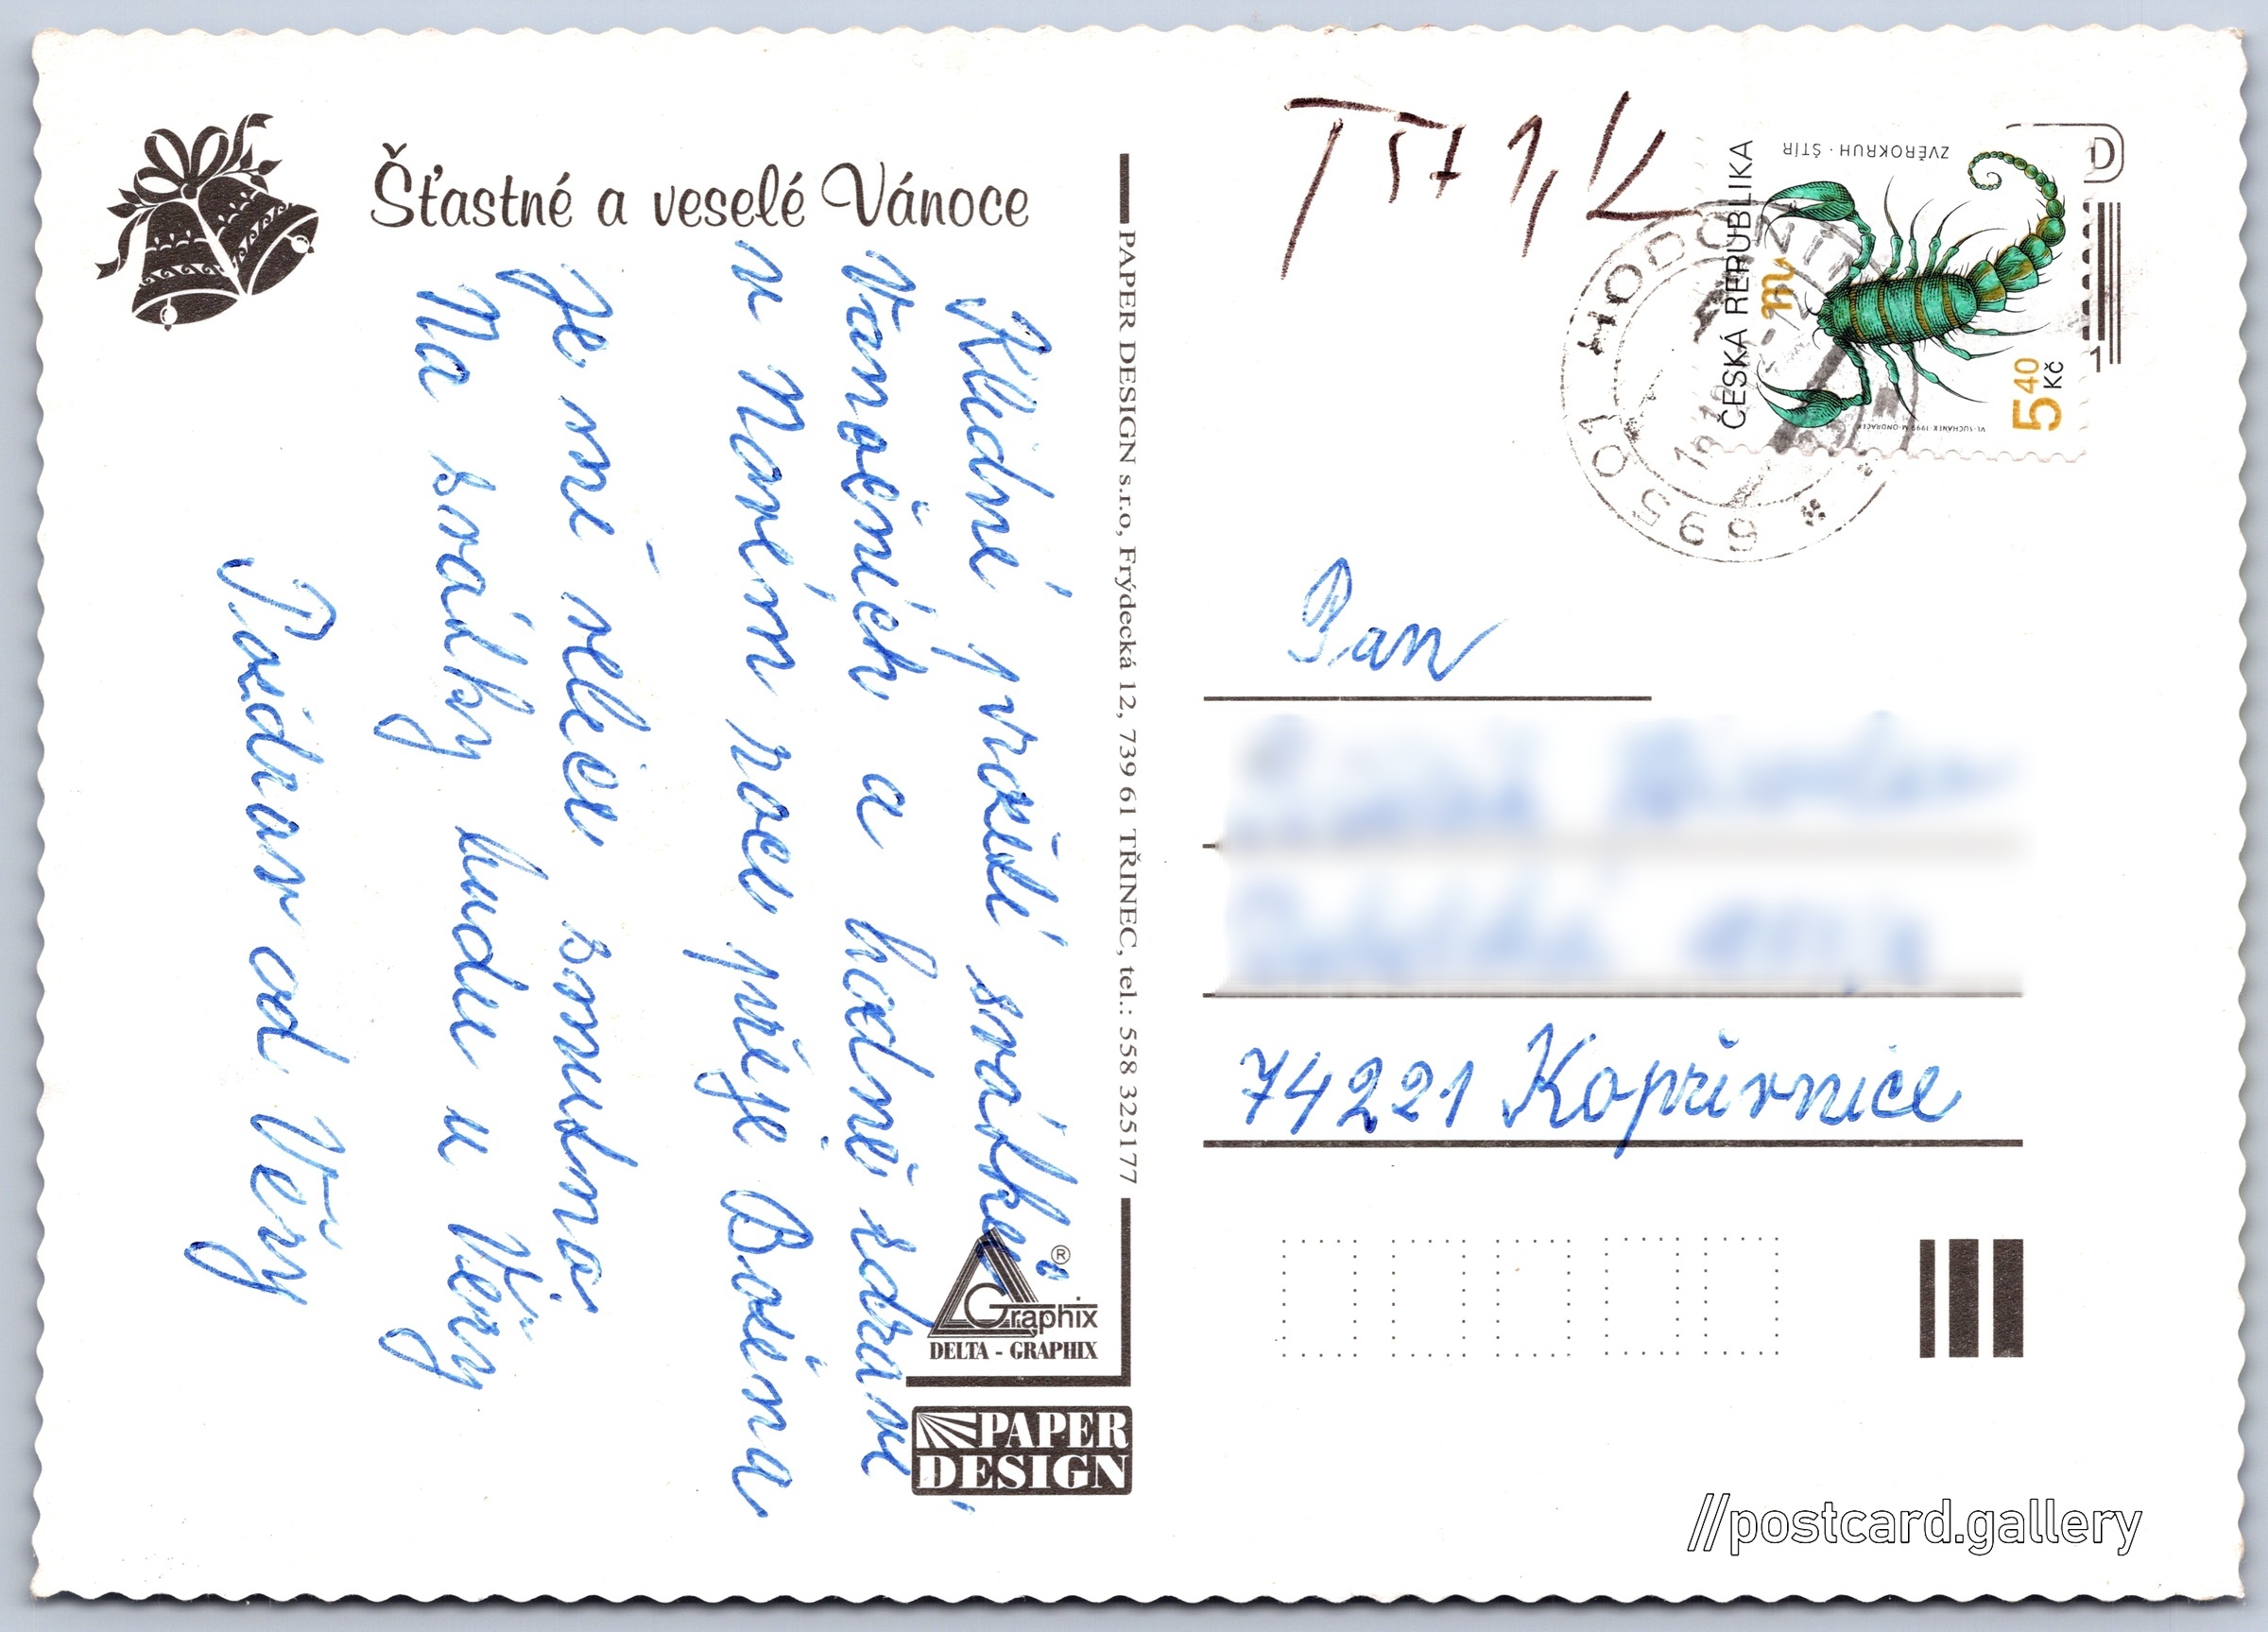 Šťastné a veselé Vánoce
Klidné prožití svátků
Vánočních a hodně zdraví
v Novém roce přeje Božena
Je mě velice smutno.
Na svátky budu u Věry
Pozdrav od Věry
PAPER DESIGN s.r.o, Frýdecká 12, 739 61 TŘINEC, tel.: 558 325177
Graphix ®
DELTA - GRAPHIX
PAPER
DESIGN
D
1
ČESKÁ REPUBLIKA
ZVĚROKRUH · ŠTÍR
540
Kč
VL·SUCHÁNEK·1999·M·ONDRÁČEK
695 01 HODONÍN
Pan
74221 Kopřivnice
//postcard.gallery